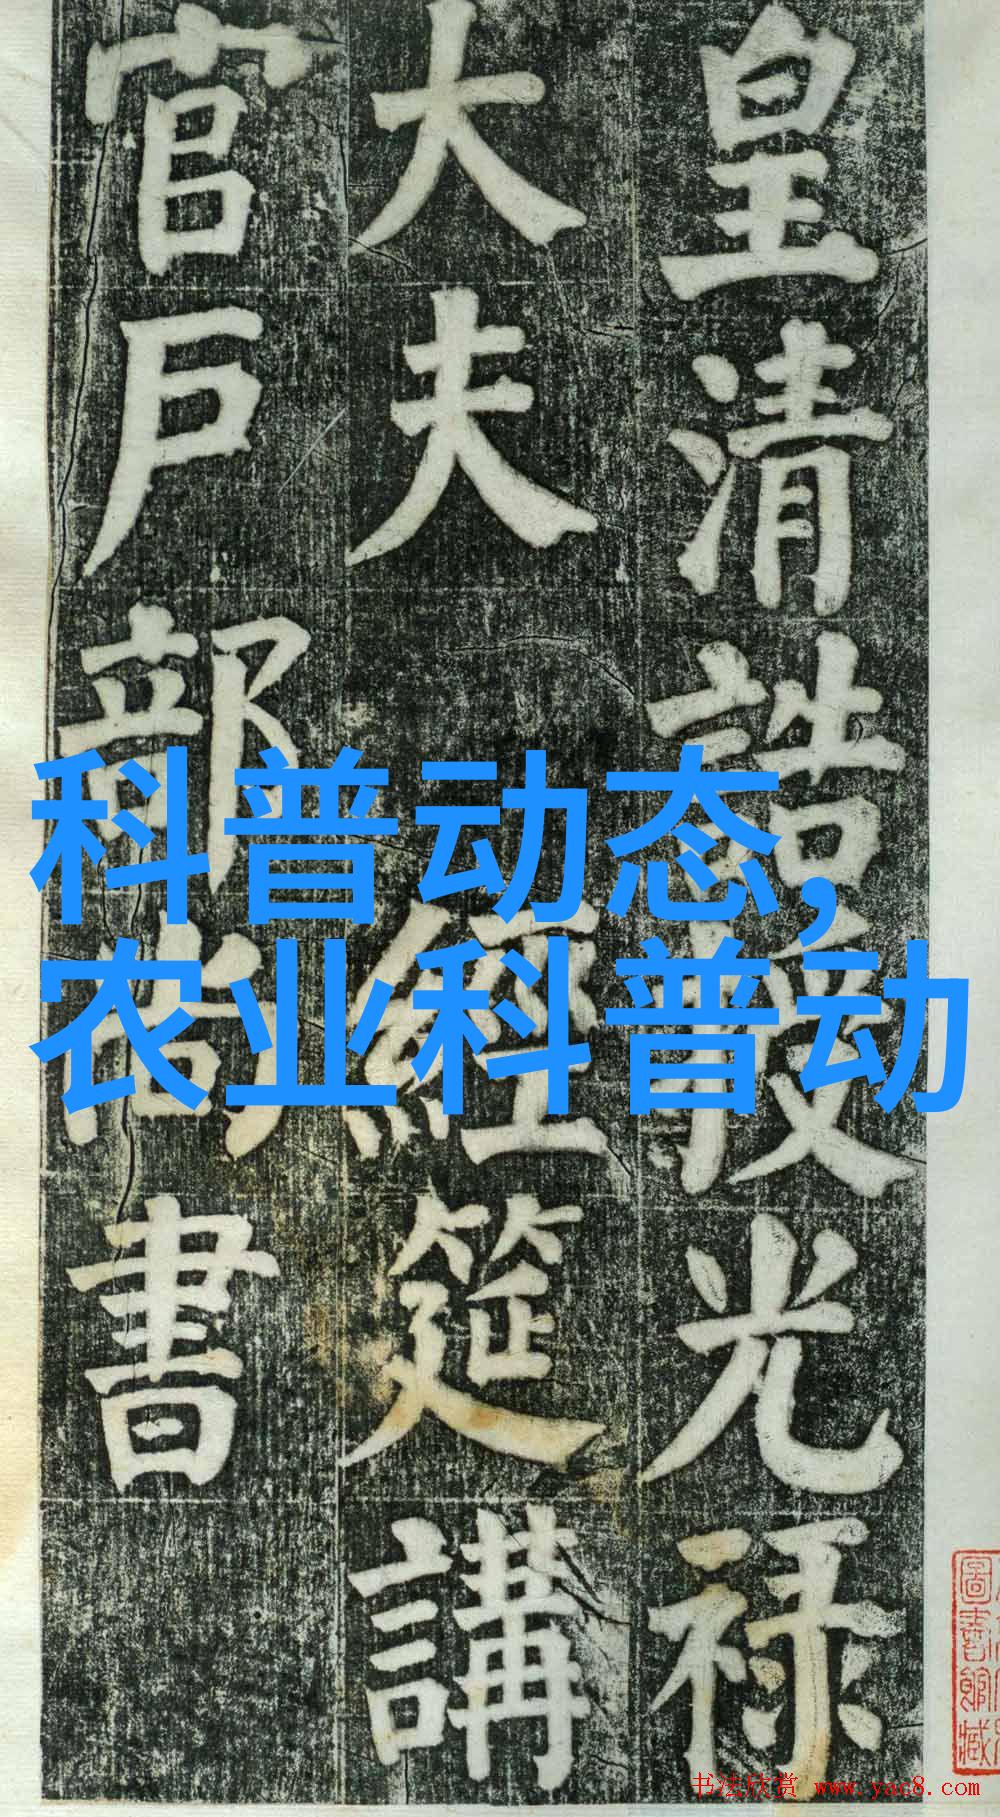 皇清誥授光禄
大夫 經筵講
官戶部尚書
科普动态,
农业科普动
圖書館藏
书法欣赏 www.yac8.com